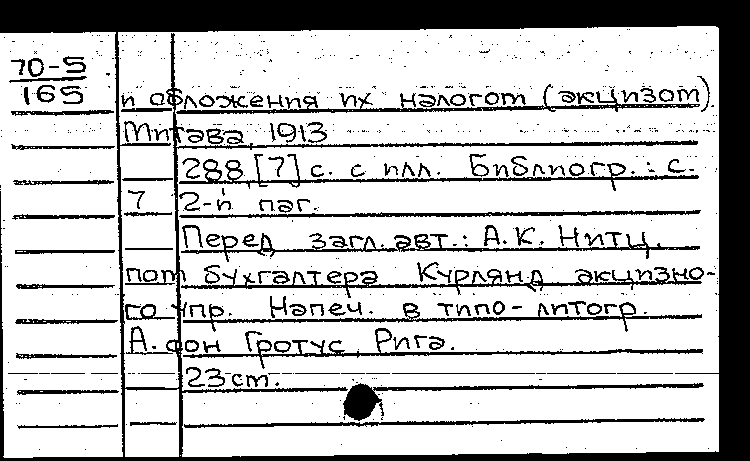 70-5
165
и обложения их налогом (акцизом)
Митава, 1913
288, [7] с. с илл. Библиогр.: с.
7 2-й паг.
Перед загл. авт.: А. К. Нитц,
пом бухгалтера Курлянд акцизно-
го упр. Напеч. в типо-литогр.
А. фон Гротус, Рига.
23 см.